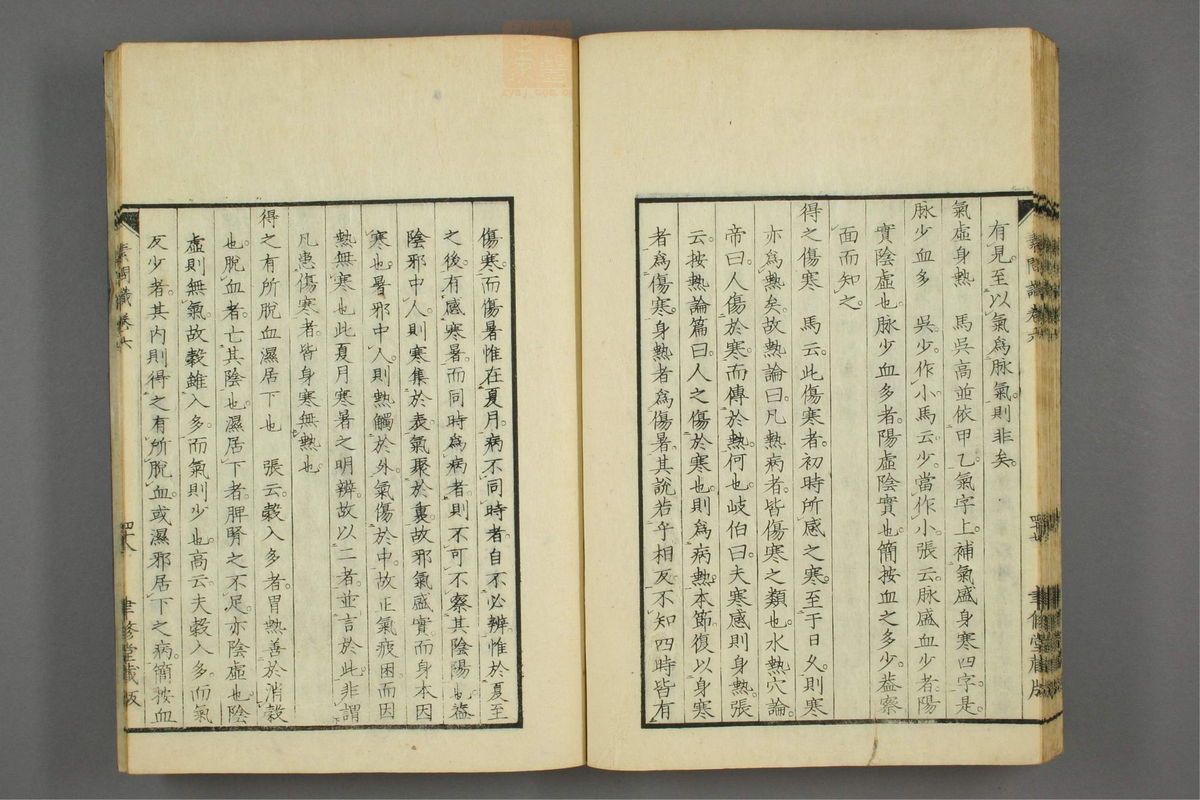 有見至以氣爲脉氣則非矣
氣虛身熱　馬吳高並依甲乙氣字上補氣盛身寒四字是
脉少血多　吳少作小馬云少當作小張云脉盛血少者陽
實陰虛也脉少血多者陽虛陰實也簡按血之多少蓋察
面而知之
得之傷寒　馬云此傷寒者初時所感之寒至于日久則寒
亦爲熱矣故熱論曰凡熱病者皆傷寒之類也水熱穴論
帝曰人傷於寒而傳於熱何也岐伯曰夫寒盛則身熱張
云按熱論篇曰人之傷於寒也則爲病熱本節復以身寒
者爲傷寒身熱者爲傷暑其說若乎相反不知四時皆有
素問識卷六
四十七
聿修堂藏版
傷寒而傷暑惟在夏月病不同時者自不必辨惟於夏至
之後有感寒暑而同時爲病者則不可不察其陰陽也葢
陰邪中人則寒集於表氣聚於裏故邪氣盛實而身本因
寒也暑邪中人則熱觸於外氣傷於中故正氣疲困而因
熱無寒也此夏月寒暑之明辨故以二者並言於此非謂
凡患傷寒者皆身寒無熱也
得之有所脫血濕居下也　張云穀入多者胃熱善於消穀
也脫血者亡其陰也濕居下者脾腎之不足亦陰虛也陰
虛則無氣故穀雖入多而氣則少也高云夫穀入多而氣
反少者其內則得之有所脫血或濕邪居下之病簡按血
素問識卷六
四十八
聿修堂藏版